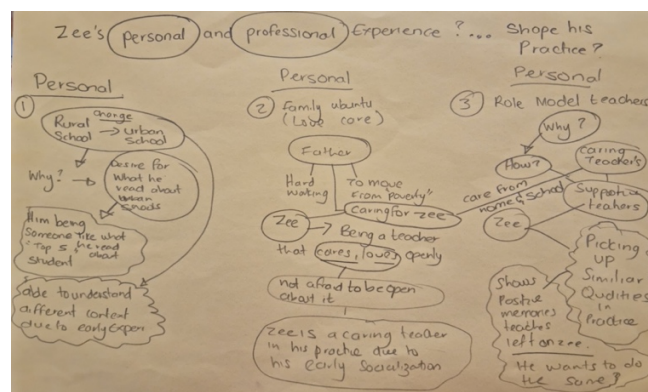 Zee's personal and professional Experience?... Shape his
Practice?
Personal
1
Rural School change → urban School
Why? →
Desire for
what he
read about
Him being
Someone like what
"Top 5" he read
student about
able to understand
different content
due to early Exper
Personal
2 family ubuntu
(Love care)
Father
Hard
working
To move
from poverty"
caring for zee
Zee → Being a teacher
that cares, loves openly
not afraid to be open
about it
Zee is a caring teacher
in his practice due to
his early Socialization
Personal
3 Role Model teachers
Why?
How?
caring
Teacher's
care from
home & School
Supportive
teahers
Zee
Picking
up
Similiar
Qudities
in
Practice
Shows
Postive
memories
teaches
left on zee.
He wants to do
the same?